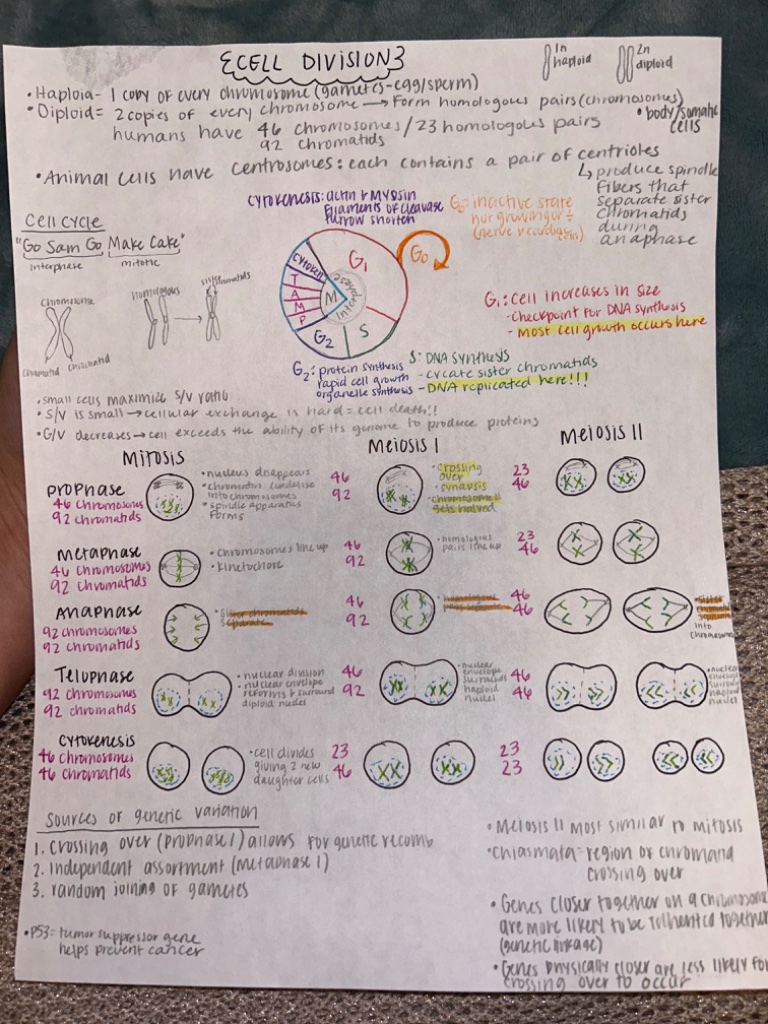 CELL DIVISION
1n haploid
2n diploid
• Haploid - 1 copy of every chromosome (gametes-egg/sperm)
• Diploid = 2 copies of every chromosome → Form homologous pairs (chromosomes)
humans have 46 chromosomes / 23 homologous pairs
92 chromatids
• body/somatic cells
• Animal cells have centrosomes: each contains a pair of centrioles
↳ produce spindle
Fibers that
separate sister
chromatids
during
anaphase
Cytokenesis: actin & myosin
Filaments of cleavage
furrow shorten
G0: inactive state
not growing or ÷
(nerve
Cell Cycle
"Go Sam Go Make Cake"
interphase
mitotic
Chromosome
chromatid
chromatid
homologous
sister chromatids
G1
G0
S
G2
P
M
A
T
cytoken
M
inter phase
G1: cell increases in size
- checkpoint for DNA synthesis
- most cell growth occurs here
S: DNA synthesis
- create sister chromatids
- DNA replicated here!!!
G2: protein synthesis
rapid cell growth
organelle synthesis
• small cells maximize S/V ratio
• S/V is small → cellular exchange is hard = cell death!!
• G/V decreases → cell exceeds the ability of its genome to produce proteins
Mitosis
Meiosis I
Meiosis II
Prophase
46 chromosomes
92 chromatids
• nucleus disappears
• chromatin condense
into chromosomes
• spindle apparatus
forms
46
92
• crossing
over
• synapsis
• chromosome #
gets halved
23
46
Metaphase
46 chromosomes
92 chromatids
• chromosomes line up
• kinetochore
46
92
• homologous
pairs line up
23
46
Anaphase
92 chromosomes
92 chromatids
• sister chromatids
separate
46
92
• homologous
pairs separate
46
46
• sister
into
chromosomes
Telophase
92 chromosomes
92 chromatids
• nuclear division
• nuclear envelope
reforms & surround
diploid nuclei
46
92
• nuclear
envelope
surrounds
haploid
nuclei
46
46
• nuclear
envelope
surrounds
haploid
nuclei
Cytokenesis
46 chromosomes
46 chromatids
• cell divides
giving 2 new
daughter cells
23
46
23
23
Sources of genetic variation
1. crossing over (prophase 1) allows for genetic recomb
2. independent assortment (metaphase 1)
3. random joining of gametes
• P53 = tumor suppressor gene
helps prevent cancer
• Meiosis II most similar to mitosis
• Chiasmata = region of
crossing over
• Genes closer together on a chromosome
are more likely to be inherited together
(genetic linkage)
• Genes physically closer are less likely for
crossing over to occur